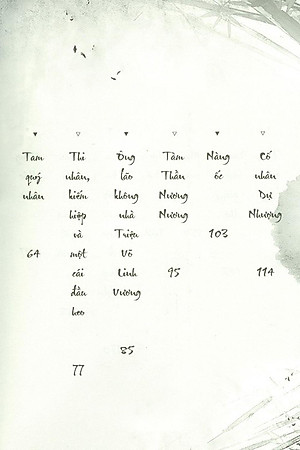 Tam quỷ nhân 64
Thi nhân, kiếm hiệp và một cái đầu heo 77
Ông lão không nhà Triệu Võ Linh Vương 85
Tàm Thần Nương Nương 95
Nàng ốc 103
Cố nhân Dự Nhượng 114